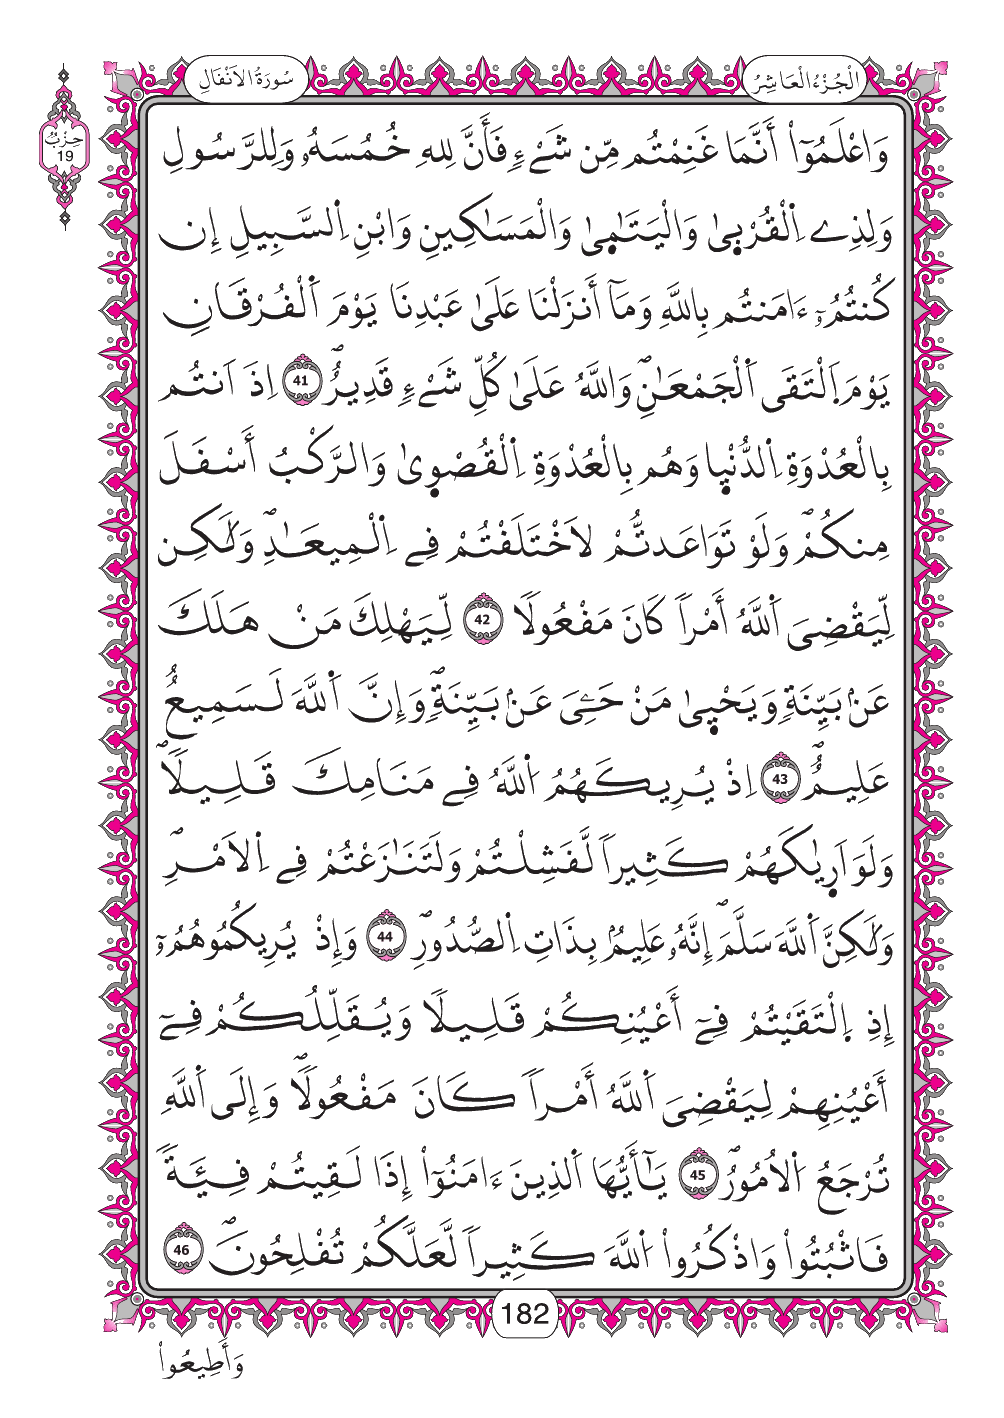 سُورَةُ الْأَنْفَالِ
الْجُزْءُ الْعَاشِرُ
حِزْبُ
19
وَاعْلَمُوٓاْ أَنَّمَا غَنِمْتُم مِّن شَےْءٖ فَأَنَّ لِلهِ خُمُسَهُۥ وَلِلرَّسُولِ
وَلِذِے اِ۬لْقُرْب۪يٰ وَالْيَتَٰم۪يٰ وَالْمَسَٰكِينِ وَابْنِ اِ۬لسَّبِيلِ إِن
كُنتُمُۥٓ ءَامَنتُم بِاللَّهِ وَمَآ أَنزَلْنَا عَلَىٰ عَبْدِنَا يَوْمَ اَ۬لْفُرْقَانِ
يَوْمَ اَ۪لْتَقَى اَ۬لْجَمْعَٰنِۖ وَاللَّهُ عَلَىٰ كُلِّ شَےْءٖ قَدِيرٌۖ 41 اِذَ اَنتُم
بِالْعُدْوَةِ اِ۬لدُّنْي۪ا وَهُم بِالْعُدْوَةِ اِ۬لْقُصْو۪يٰ وَالرَّكْبُ أَسْفَلَ
مِنكُمْۖ وَلَوْ تَوَاعَدتُّمْ لَاخْتَلَفْتُمْ فِے اِ۬لْمِيعَٰدِۖ وَلَٰكِن
لِّيَقْضِيَ اَ۬للَّهُ أَمْراٗ كَانَ مَفْعُولاٗ 42 لِّيَهْلِكَ مَنْ هَلَكَ
عَنۢ بَيِّنَةٖ وَيَحْي۪يٰ مَنْ حَيِيَ عَنۢ بَيِّنَةٖۖ وَإِنَّ اَ۬للَّهَ لَسَمِيعٌ
عَلِيمٌۖ 43 اِذْ يُرِيكَهُمُ اُ۬للَّهُ فِے مَنَامِكَ قَلِيلاٗۖ
وَلَوَ اَر۪يٰكَهُمْ كَثِيراٗ لَّفَشِلْتُمْ وَلَتَنَٰزَعْتُمْ فِے اِ۬لَامْرِۖ
وَلَٰكِنَّ اَ۬للَّهَ سَلَّمَۖ إِنَّهُۥ عَلِيمُۢ بِذَاتِ اِ۬لصُّدُورِۖ 44 وَإِذْ يُرِيكُمُوهُمُۥٓ
إِذِ اِ۪لْتَقَيْتُمْ فِےٓ أَعْيُنِكُمْ قَلِيلاٗ وَيُقَلِّلُكُمْ فِےٓ
أَعْيُنِهِمْ لِيَقْضِيَ اَ۬للَّهُ أَمْراٗ كَانَ مَفْعُولاٗۖ وَإِلَى اَ۬للَّهِ
تُرْجَعُ اُ۬لُامُورُۖ 45 يَٰٓأَيُّهَا اَ۬لذِينَ ءَامَنُوٓاْ إِذَا لَقِيتُمْ فِئَةٗ
فَاثْبُتُواْ وَاذْكُرُواْ اُ۬للَّهَ كَثِيراٗ لَّعَلَّكُمْ تُفْلِحُونَۖ 46
182
وَأَطِيعُواْ